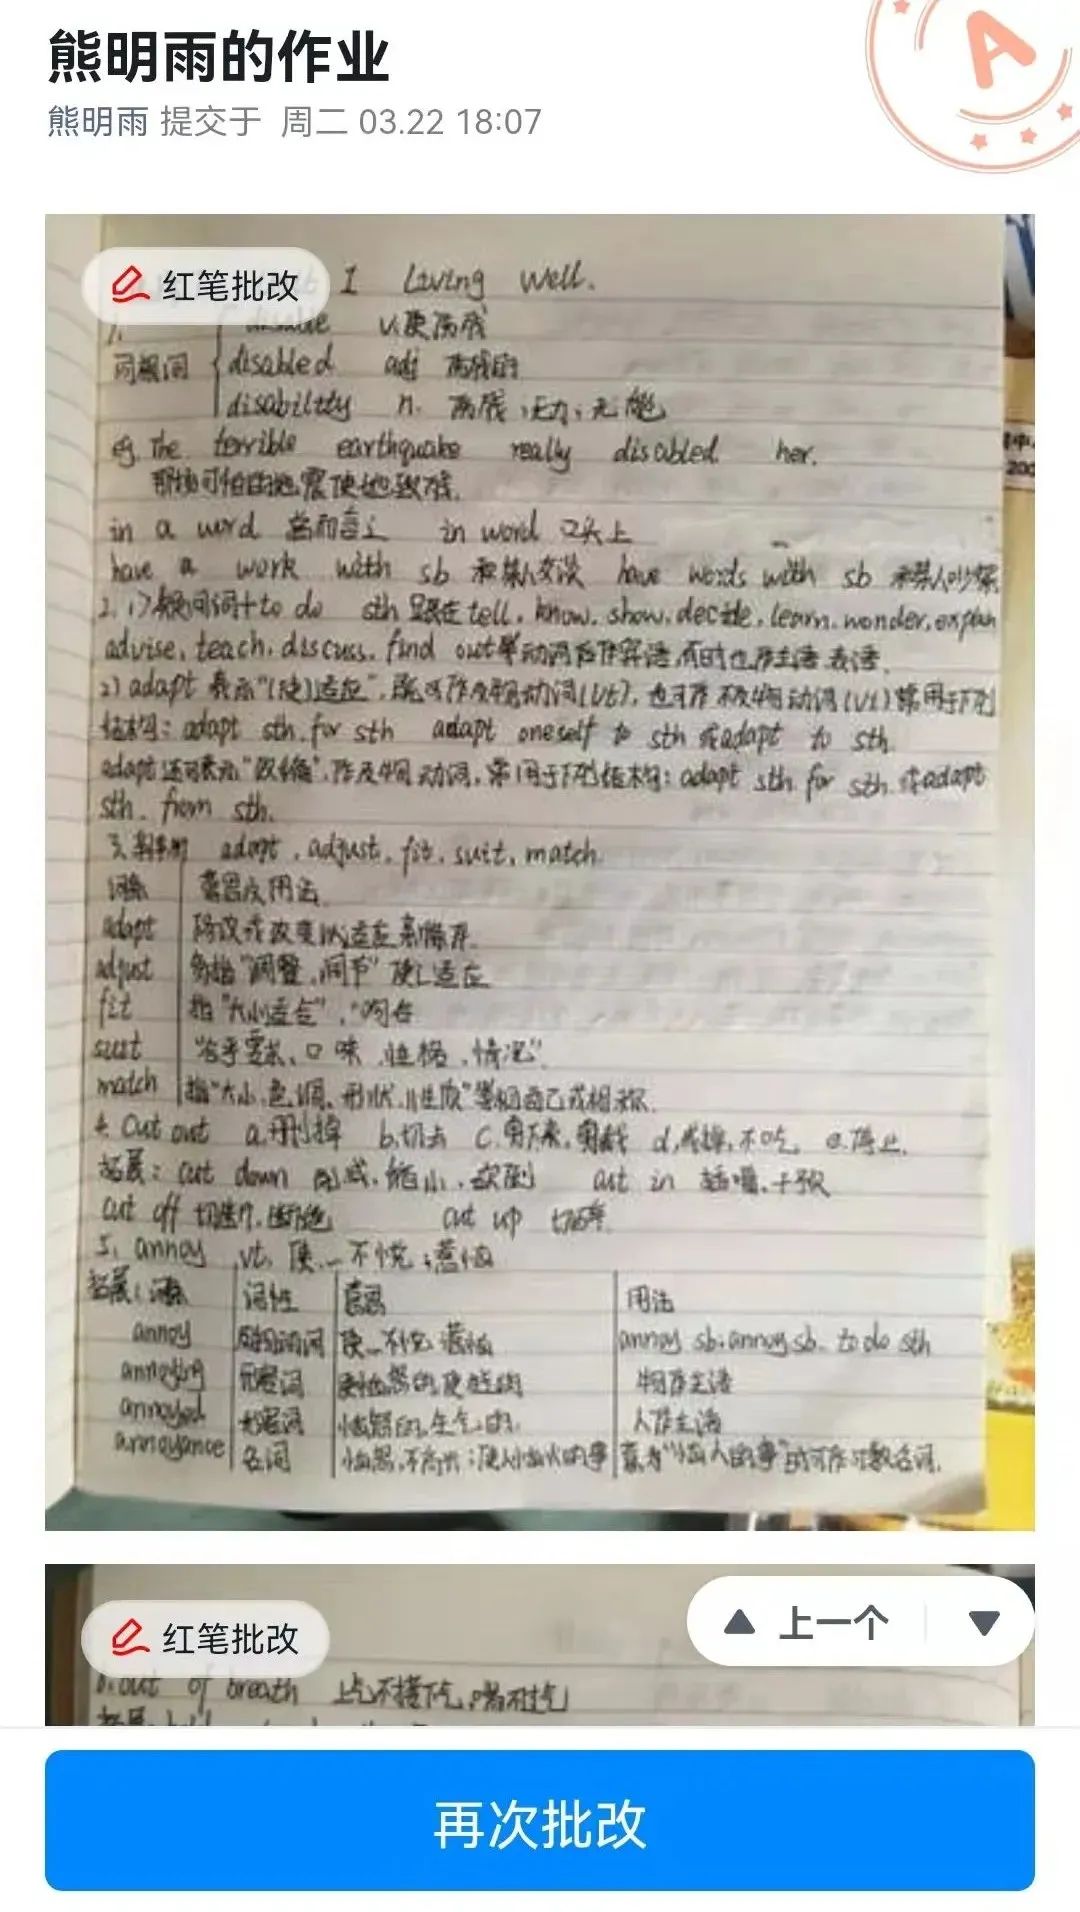 熊明雨的作业
A
熊明雨 提交于 周二 03.22 18:07
红笔批改
I Living well.
1. disable v.使伤残
同根词 disabled adj 伤残的
disabiltty n. 伤残,无力,无能
eg. The terrible earthquake really disabled her.
那场可怕的地震使她致残.
in a word 总而言之 in word 口头上
have a work with sb 和某人交谈 have words with sb 和某人吵架
2. 1)疑问词+to do sth 跟在tell, know, show, decide, learn, wonder, explain
advise, teach, discuss, find out等动词后作宾语,有时也作主语表语.
2) adapt 表示"(使)适应",既可作及物动词(vt),也可作不及物动词(vi)常用于下列
结构: adapt sth. for sth adapt oneself to sth 或adapt to sth.
adapt还可表示"改编",作及物动词,常用于下列结构: adapt sth for sth 或adapt
sth. from sth.
3. adapt, adjust, fit, suit, match.
词条 意思及用法
adapt 修改或改变以适应新情况.
adjust 多指"调整、调节"使之适应
fit 指"大小适合",
suit "合乎要求、口味、性格、情况".
match 指"大小、色调、形状、性质"等
4. cut out a.删掉 b.切去 c.剪下来,剪裁 d.戒掉,不吃 e.停止.
拓展: cut down 削减,缩小,砍倒 cut in 插嘴,干预
cut off 切断,断绝 cut up 切碎
5. annoy vt. 使…不悦;惹恼
拓展: 词条 词性 意思 用法
annoy 及物动词 使…不悦 惹恼 annoy sb. annoy sb. to do sth
annoying 形容词 物作主语
annoyed 形容词 恼怒的,生气的. 人作主语
annoyance 名词 恼怒,不高兴;使人恼火的事 意为"恼人的事"时可作可数名词.
红笔批改
上一个
out of breath 上气不接下气,喘不过气
再次批改